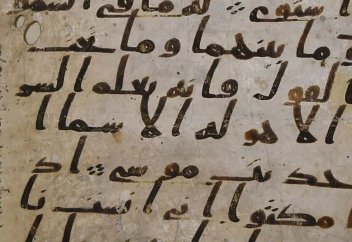 ستوى له ما في السمو
و ما بينهما وما تحت
لقول فانه يعلم السر
الا هو له الاسما ا
حديث موسى اذ
مكثوا اني انست نا